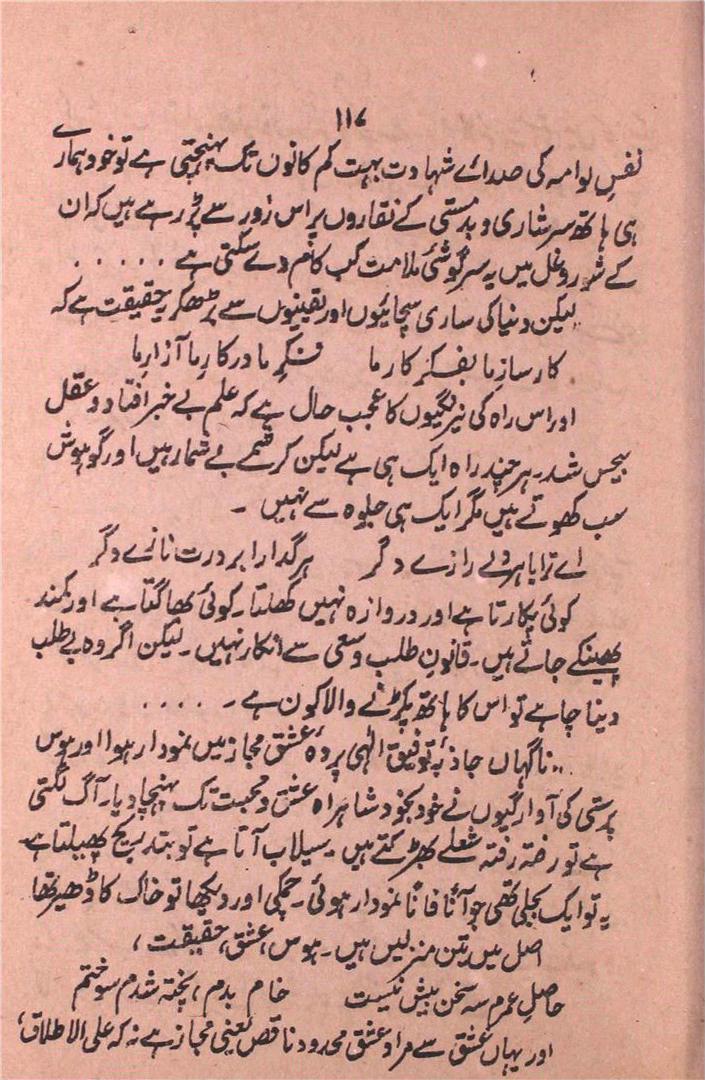 ۱۱۷
نفسِ لوامہ کی صدائے شہادت بہت کم کانوں تک پہنچتی ہے تو خود ہمارے
ہی ہاتھ سرشاری و بدمستی کے نقاروں پر اس زور سے پڑ رہے ہیں کہ ان
کے شور و غل میں یہ سرگوشئ ملامت کب کام دے سکتی ہے . . . . .
"لیکن دنیا کی ساری سچائیوں اور یقینیوں سے بڑھکر یہ حقیقت ہے کہ
کارسازِ ما بفکرِ کارِ ما فکرِ ما در کارِ ما آزارِ ما
اور اس راہ کی نیرنگیوں کا عجب حال ہے کہ علم بے خبر افتاد و عقل
بیحس شد۔ ہر چند راہ ایک ہی ہے لیکن کرشمے بے شمار ہیں اور گو ہوش
سب کھوتے ہیں مگر ایک ہی جلوہ سے نہیں ۔
اے ترا با ہر دلے رازے دگر ہر گدا را بر درت نازے دگر
کوئی پکارتا ہے اور دروازہ نہیں کھلتا۔ کوئی بھاگتا ہے اور کمند
پھینکے جاتے ہیں۔ قانونِ طلب و سعی سے انکار نہیں۔ لیکن اگر وہ بے طلب
دینا چاہے تو اس کا ہاتھ پکڑنے والا کون ہے ۔ . . . .
"ناگہاں جاذبۂ توفیقِ الٰہی پردۂ عشقِ مجاز میں نمودار ہوا اور ہوس
پرستی کی آوارگیوں نے خود بخود شاہراہ عشق و محبت تک پہنچا دیا۔ آگ لگتی
ہے تو رفتہ رفتہ شعلے بھڑکتے ہیں۔ سیلاب آتا ہے تو بتدریج پھیلتا ہے۔
یہ تو ایک بجلی تھی جو آناً فاناً نمودار ہوئی۔ چمکی اور دیکھا تو خاک کا ڈھیر تھا
اصل میں تین منزلیں ہیں۔ ہوس، عشق، حقیقت،
حاصلِ عمرم سہ سخن بیش نیست خام بدم، پختہ شدم سوختم
اور یہاں عشق سے مراد عشق محدود ناقص یعنی مجاز ہے نہ کہ علی الاطلاق،